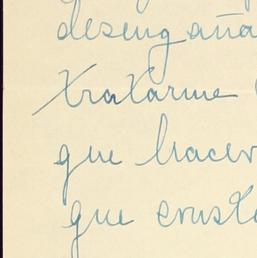 desengaña
tratarme
que hacer
que consta